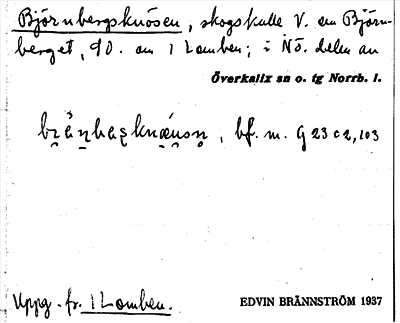 Björnbergsknösen, skogskulle V. om Björn-
berget, 9 O. om 1 Lomben; i NÖ. delen av
Överkalix sn o. tg Norrb. l.
bf. m. G 23 c 2, 103
Uppg. fr. 1 Lomben.
EDVIN BRÄNNSTRÖM 1937